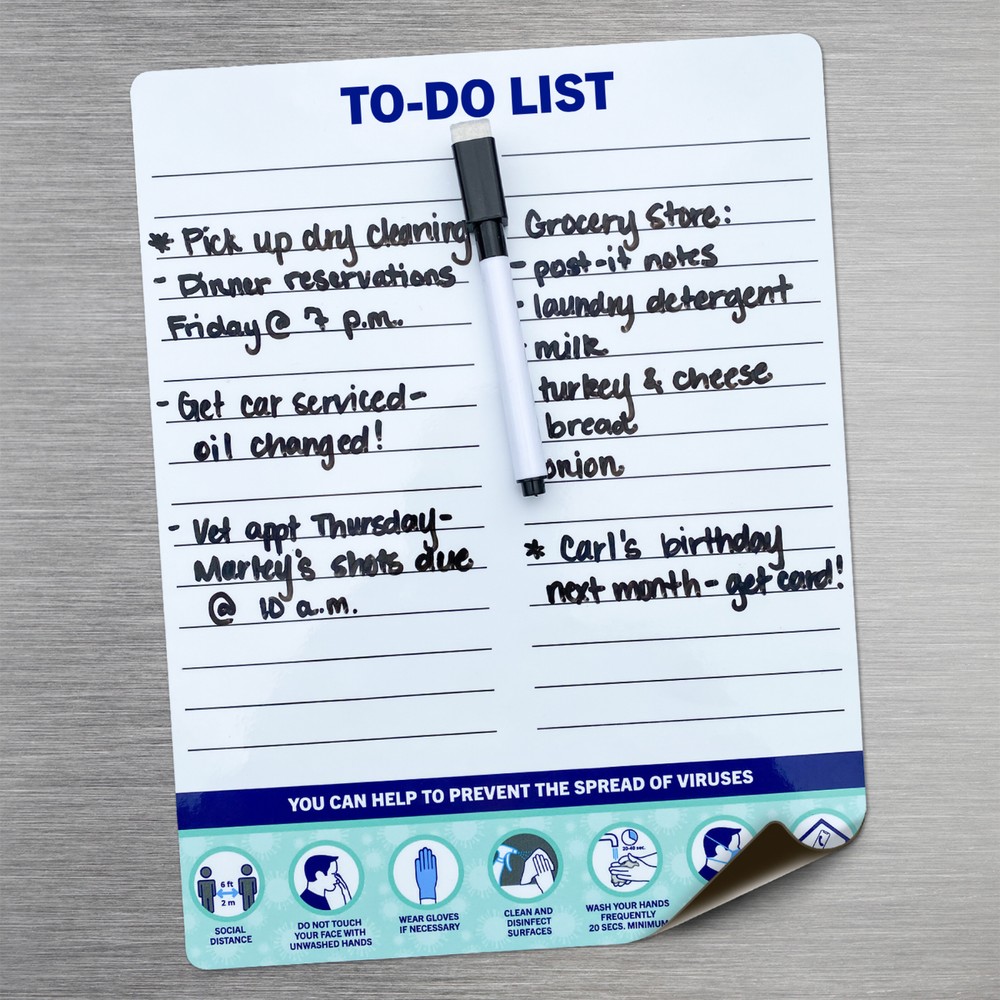 TO-DO LIST
* Pick up dry cleaning
- Dinner reservations
Friday @ 7 p.m.
- Get car serviced-
oil changed!
- Vet appt Thursday-
Marley's shots due
@ 10 a.m.
Grocery Store:
- post-it notes
- laundry detergent
- milk
turkey & cheese
bread
onion
* Carl's birthday
next month - get card!
YOU CAN HELP TO PREVENT THE SPREAD OF VIRUSES
6 ft
2 m
SOCIAL
DISTANCE
DO NOT TOUCH
YOUR FACE WITH
UNWASHED HANDS
WEAR GLOVES
IF NECESSARY
CLEAN AND
DISINFECT
SURFACES
20-40 sec.
WASH YOUR HANDS
FREQUENTLY
20 SECS. MINIMUM